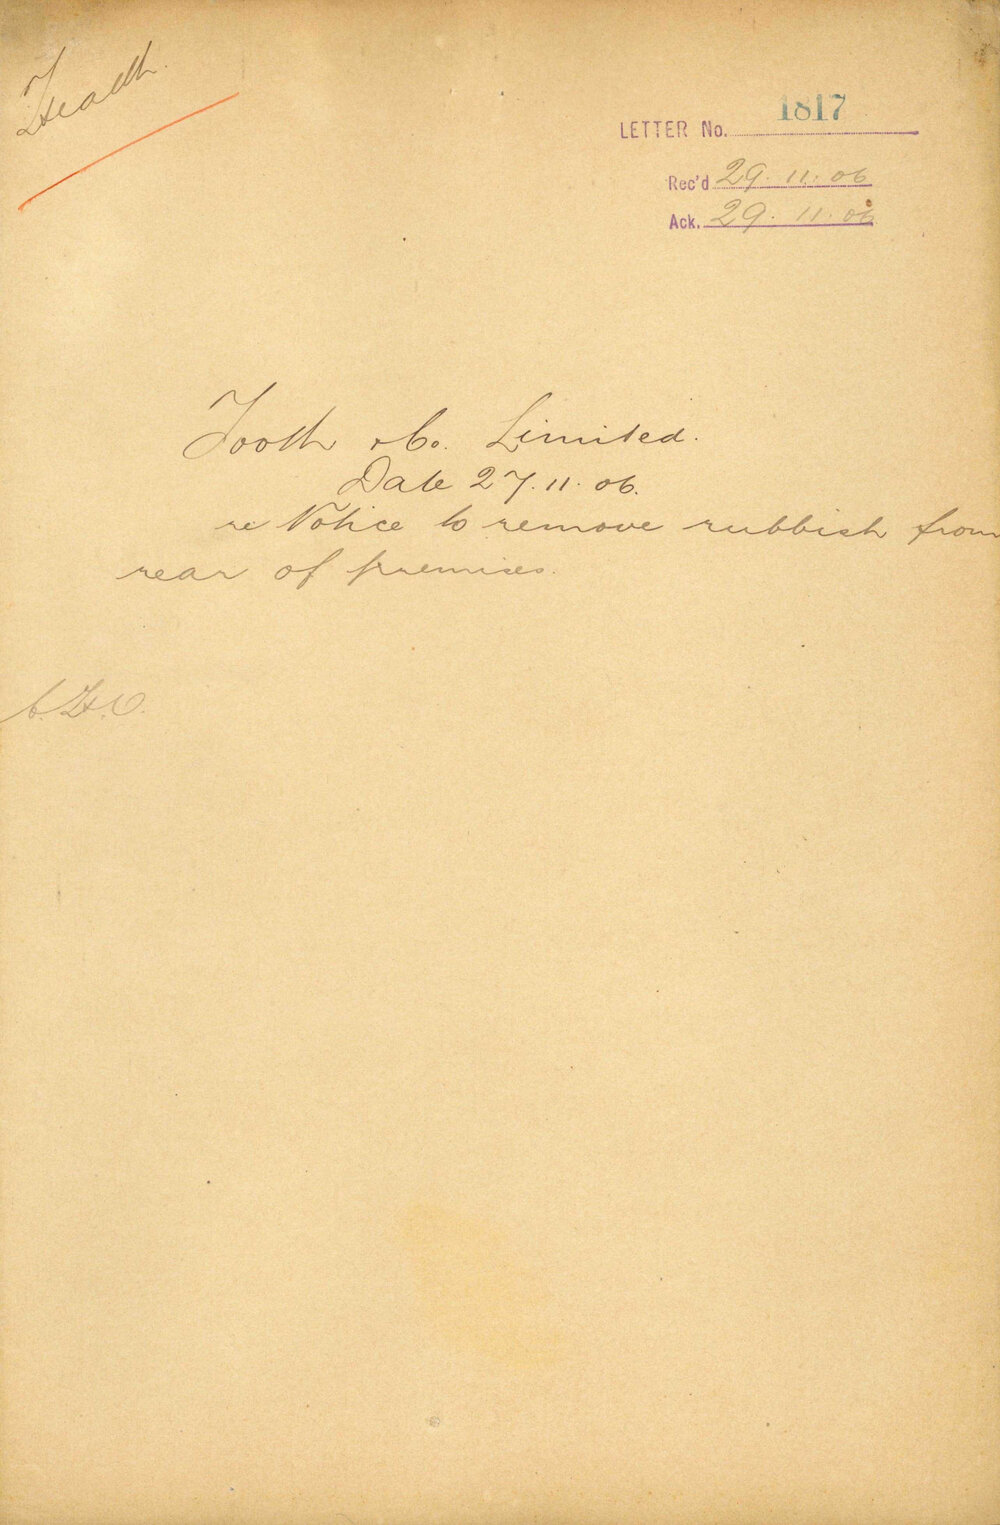 Health.
LETTER No. 1817
Rec'd 29.11.06
Ack. 29.11.06
Tooth & Co. Limited.
Date 27.11.06.
re Notice to remove rubbish from
rear of premises.
C.H.O.